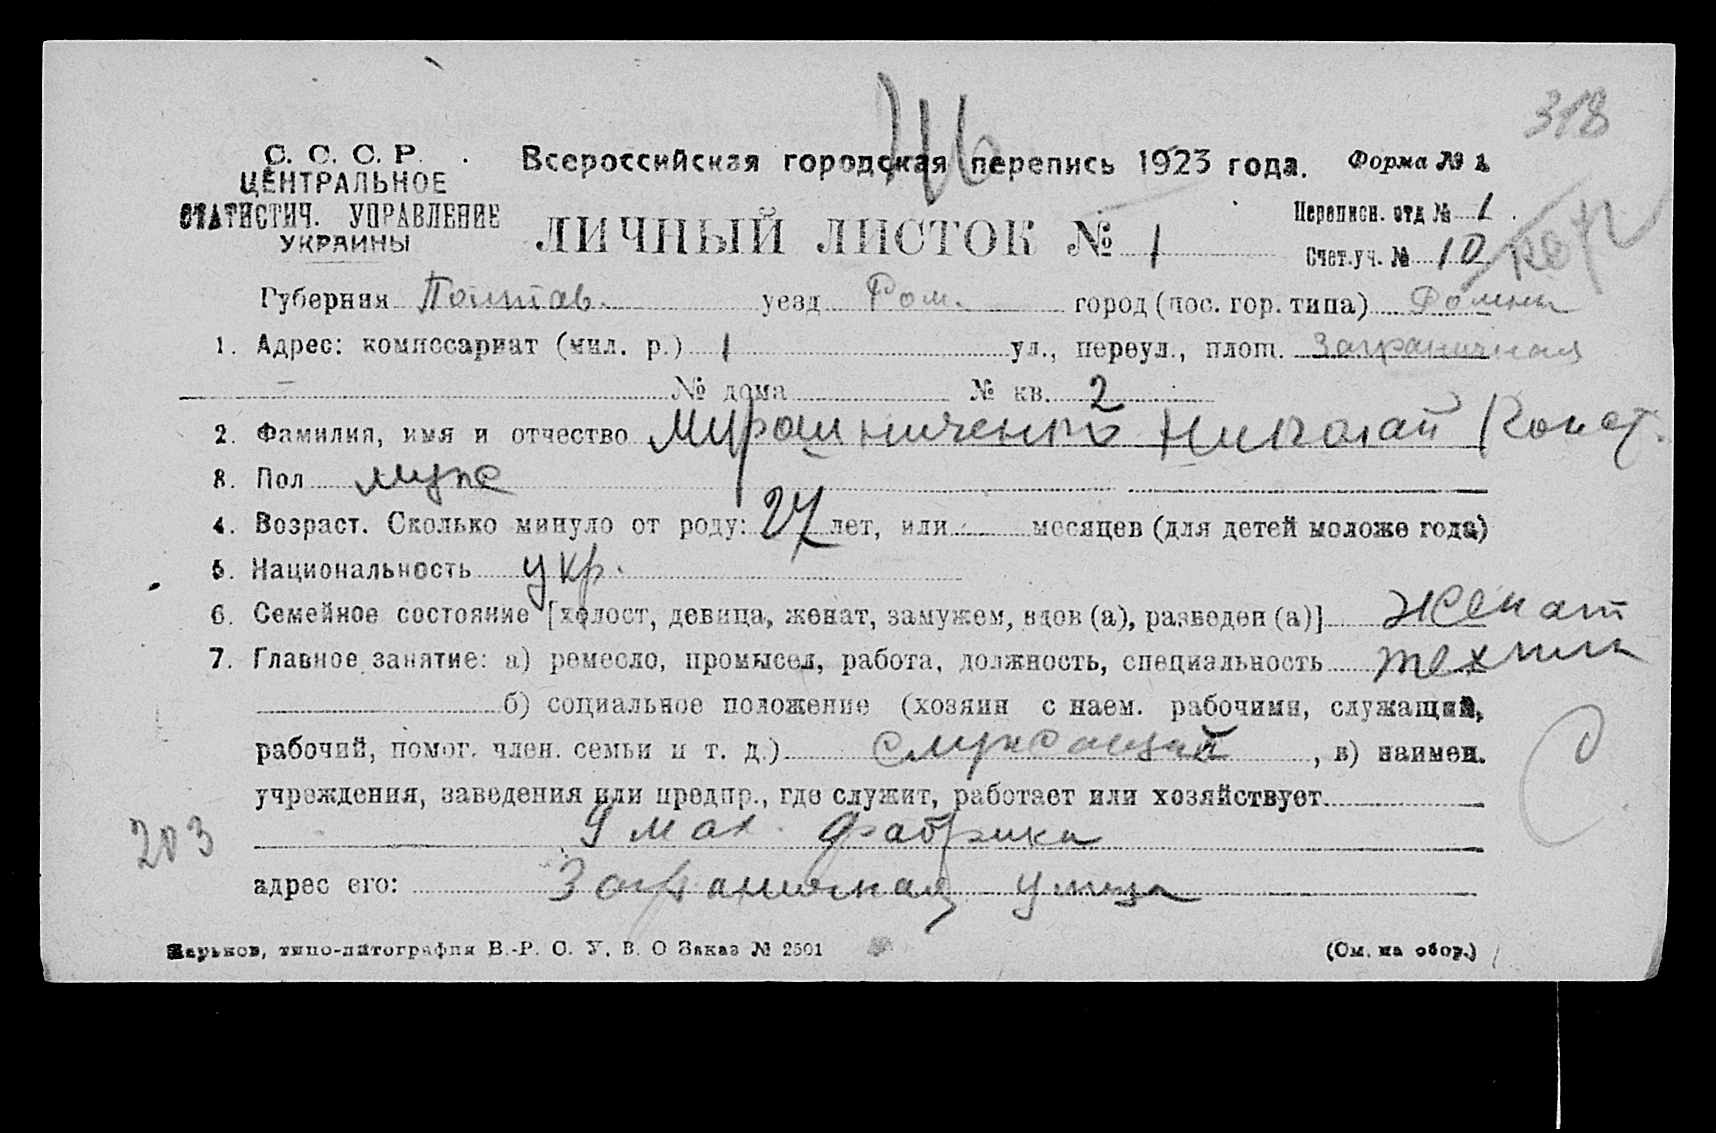 318
716
С. С. С. Р.
ЦЕНТРАЛЬНОЕ
СТАТИСТИЧ. УПРАВЛЕНИЕ
УКРАИНЫ
Всероссийская городская перепись 1923 года. Форма № 1
Переписн. отд № 1
ЛИЧНЫЙ ЛИСТОК № 1
Счет.уч. № 10
Губерния Полтав. уезд Ром. город (пос. гор. типа) Ромны
1. Адрес: комиссариат (мил. р.) 1 ул., переул., площ. Заграничная
№ дома № кв. 2
2. Фамилия, имя и отчество Мирошниченко Николай Конст.
3. Пол муж
4. Возраст. Сколько минуло от роду: 27 лет, или - месяцев (для детей моложе года)
5. Национальность укр.
6. Семейное состояние [холост, девица, женат, замужем, вдов (а), разведен (а)] женат
7. Главное занятие: а) ремесло, промысел, работа, должность, специальность техник
б) социальное положение (хозяин с наем. рабочими, служащий,
рабочий, помог. член. семьи и т. д.) служащий, в) наимен.
учреждения, заведения или предпр., где служит, работает или хозяйствует
мах. фабрика
203
адрес его: Заграничная улица
Харьков, типо-литография В.-Р. С. У. В. О Заказ № 2501
(См. на обор.)